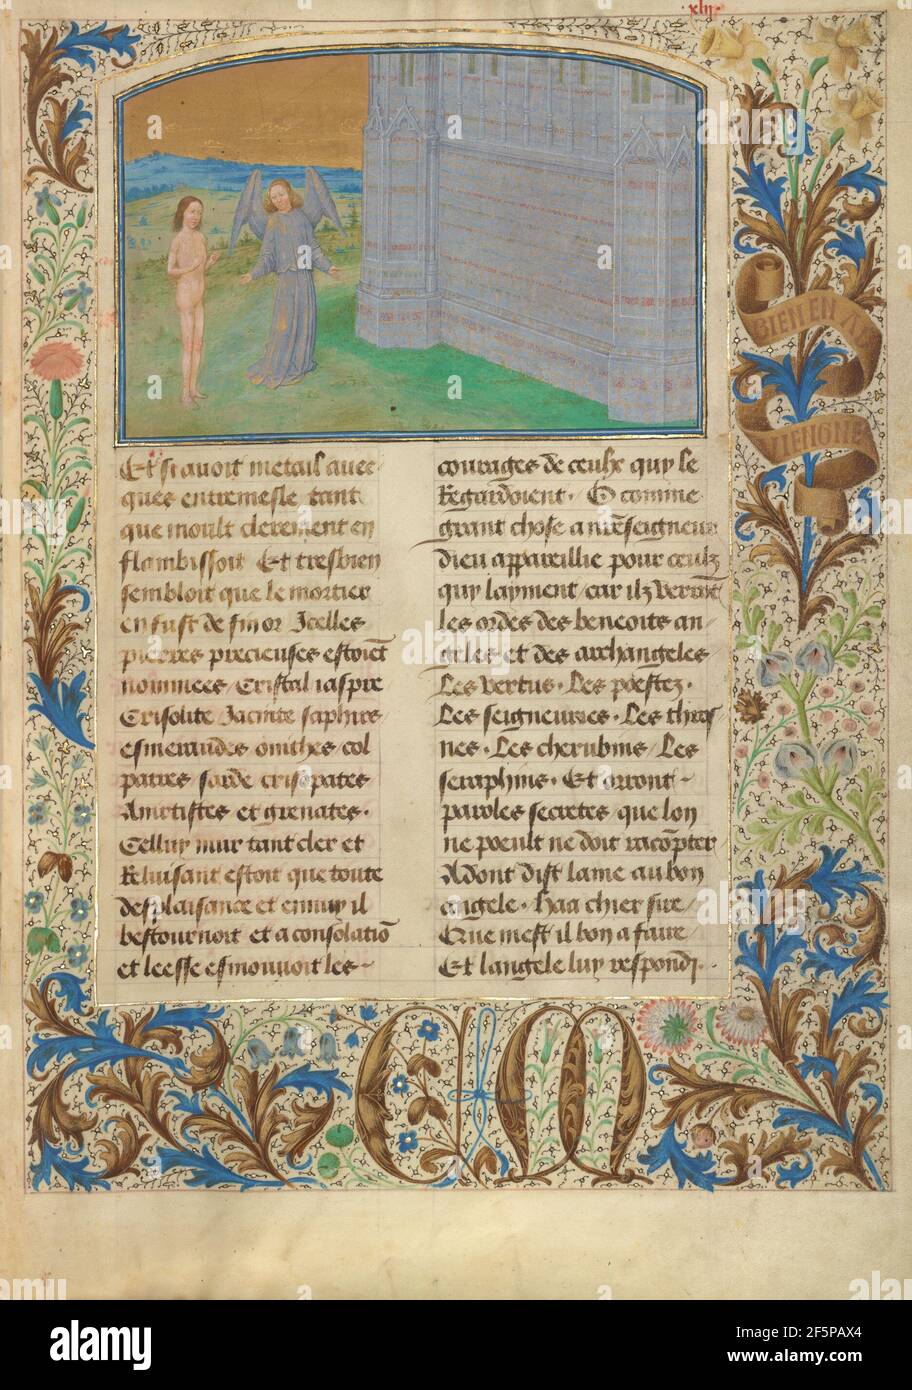 xlij
BIEN EN A
VIENGNE
Et si avoit metail avec
ques entremesle tant
que moult clerement en
flambissoit Et tresbien
sembloit que le mortier
en fust de fin or Icelles
pierres precieuses estoiēt
nommees / Cristal iaspre
Crisolite Jacinte saphirs
esmeraudes onithes col
patres sarde crisopates
Amatistes et grenates.
Celluy mur tant cler et
Reluisant estoit que toute
desplaisance et ennuy il
bestournoit et a consolatiō
et leesse esmouvoit les
courages de ceulx quy le
Regardoient. O comme
grant chose a nr̄eseigneur
dieu appareillie pour ceulz
quy layment / car ilz verront
les ordes des benoits an-
geles et des archangeles
Les vertus. Les poestez.
Les seigneuries. Les thros
nes. Les cherubins / Les
seraphins. Et orront
paroles secretes que lon
ne poeult ne doit racōpter
Adont dist lame au bon
angele. Haa chier sire /
Que mest il bon a faire /
Et langele luy respondi.
CM
alamy
Image ID: 2F5PAX4
www.alamy.com